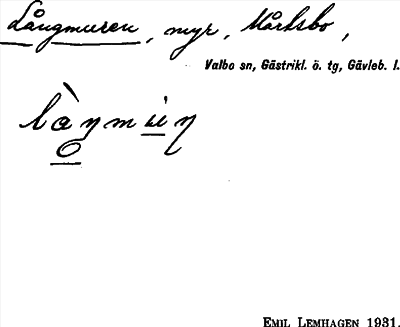 Långmuren, myr, Mårtsbo,
Valbo sn, Gästrikl. ö. tg, Gävleb. l.
EMIL LEMHAGEN 1931.